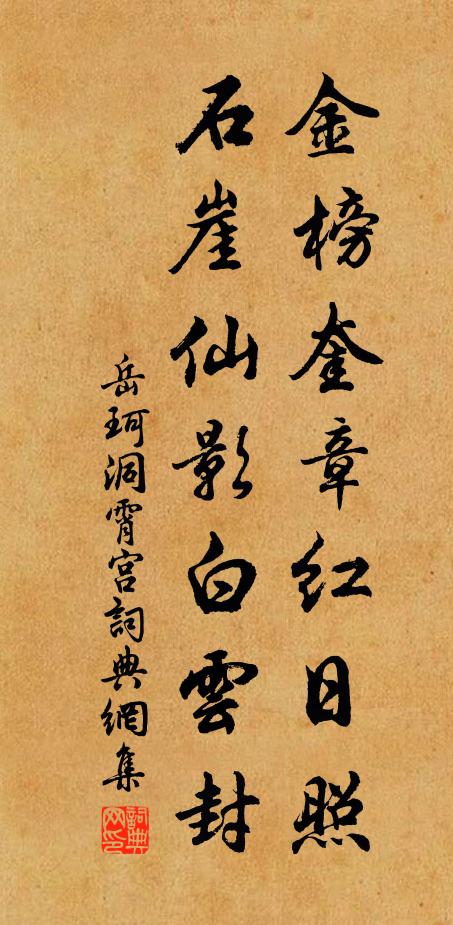 金榜奎章紅日照
石崖仙影白雲封
岳珂洞霄宮詞典網集
詞典網印